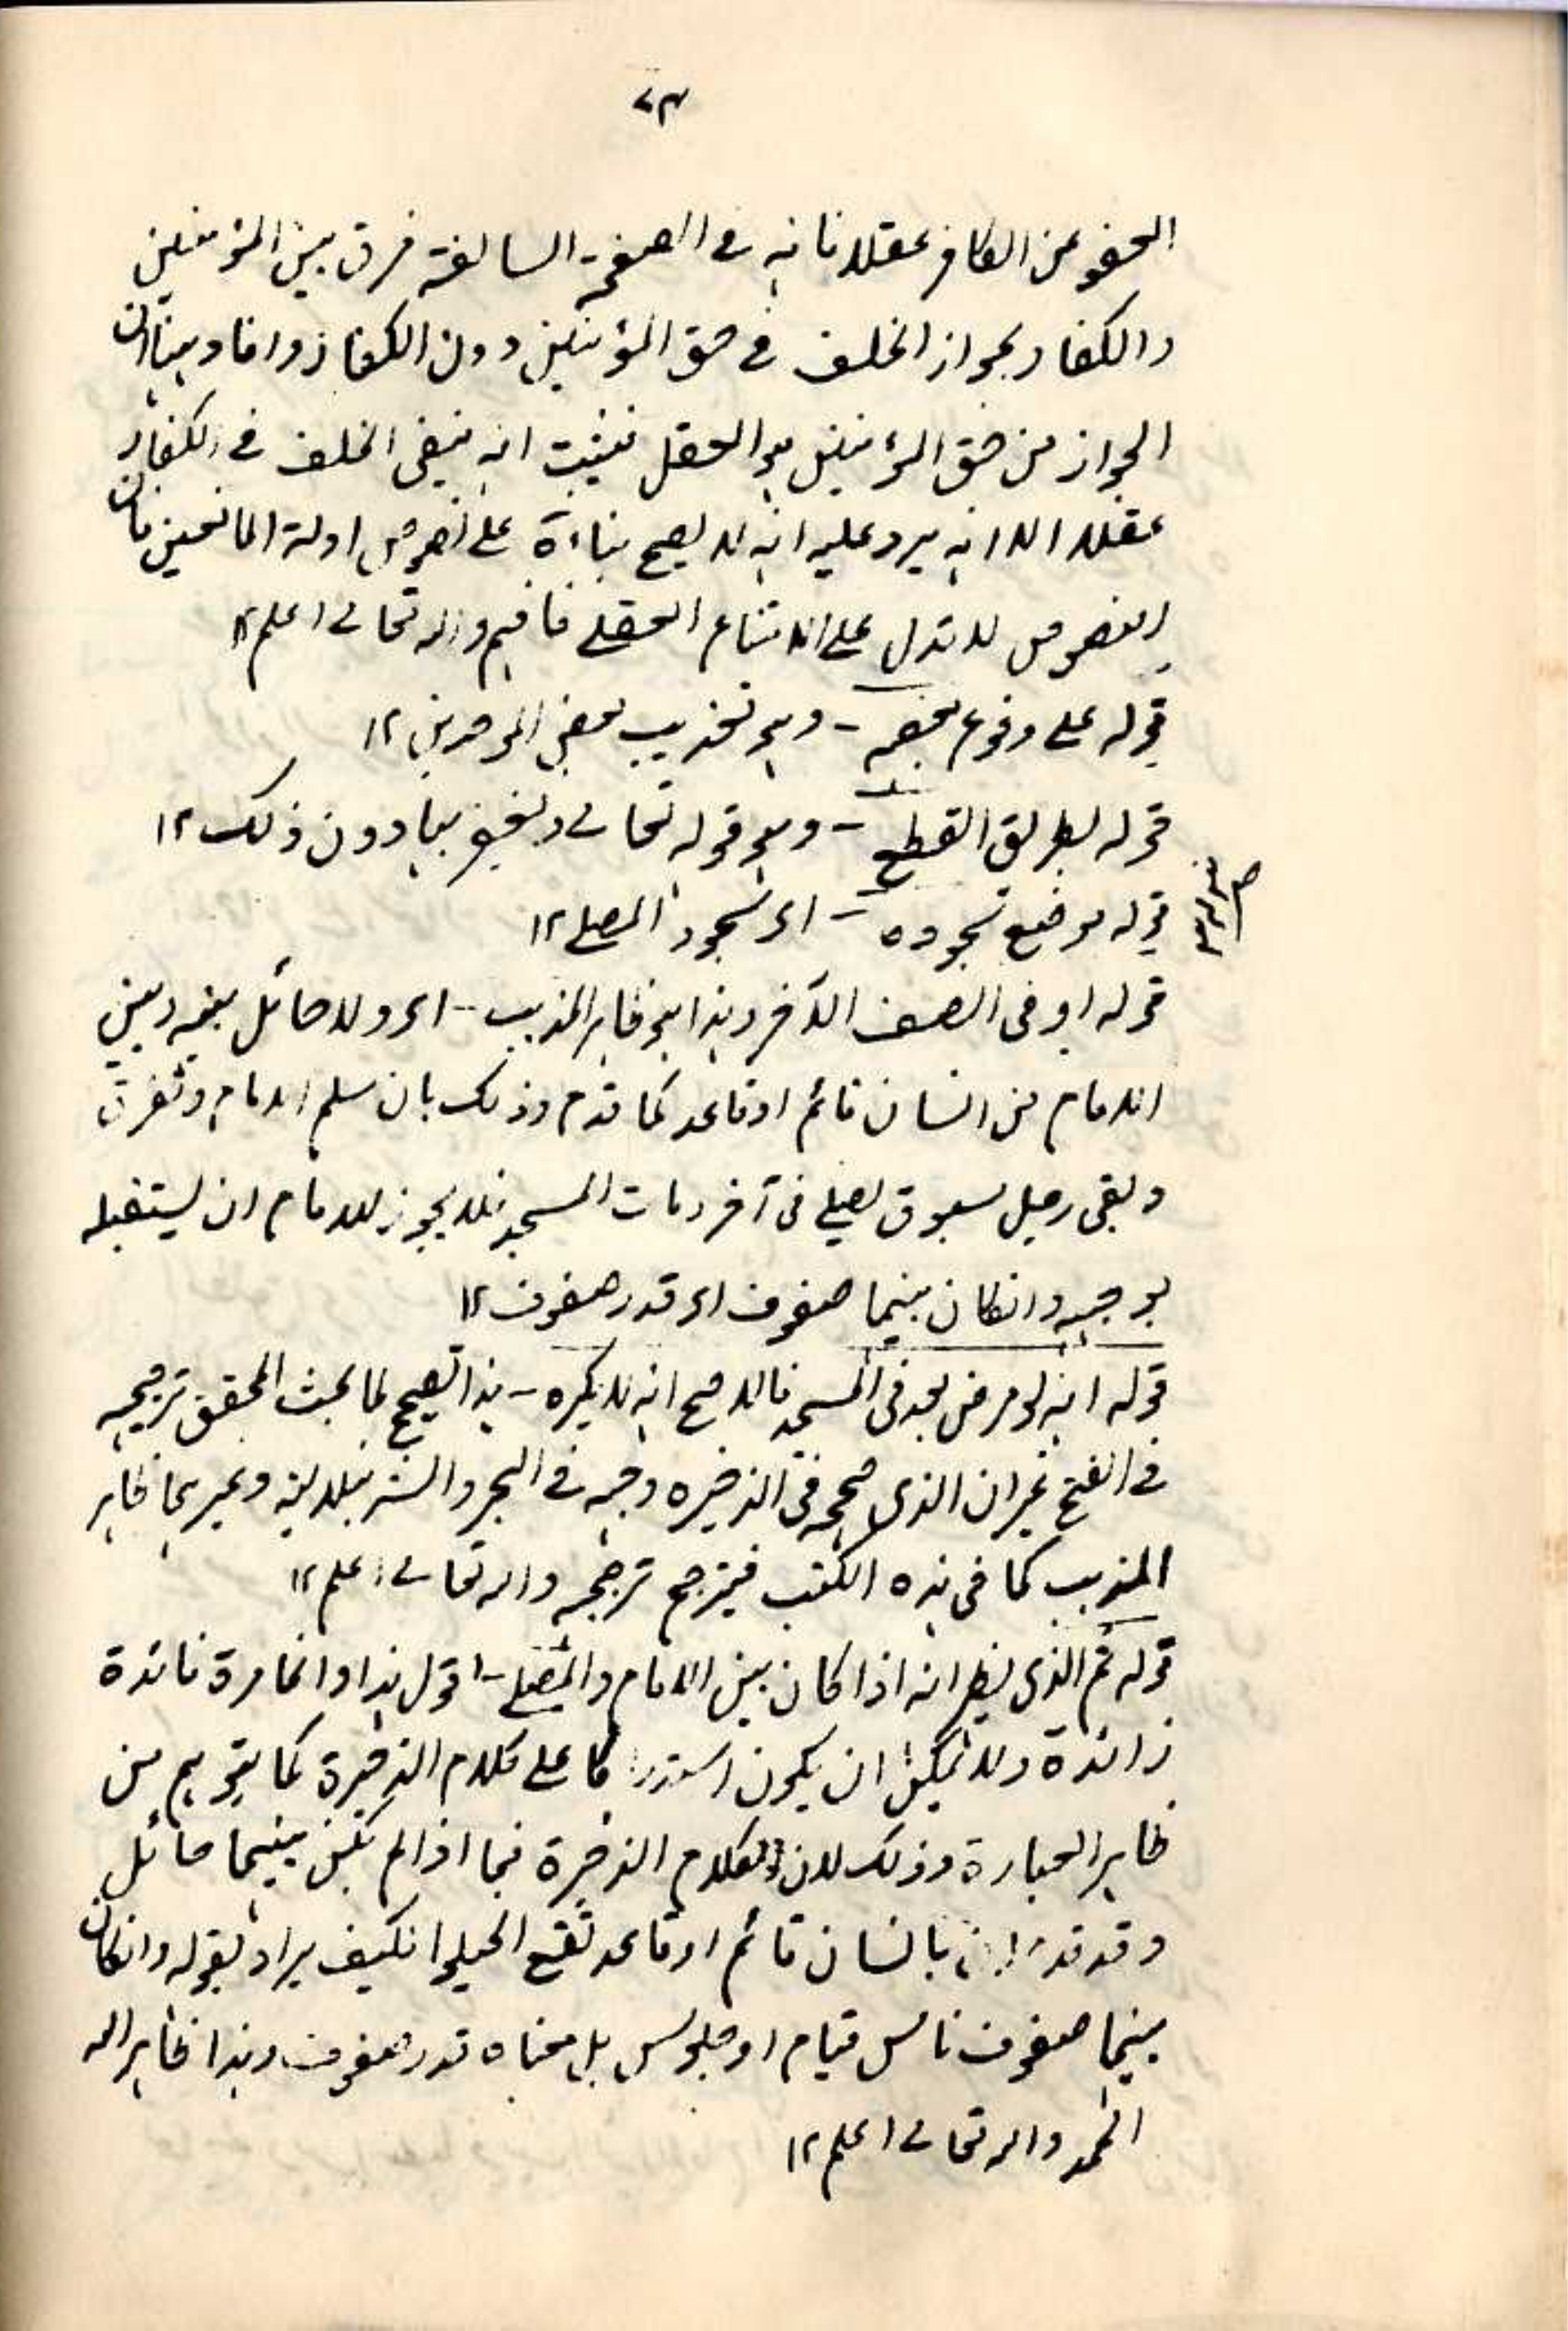 ٧٣
العفو عن الكافر عقلا فانه فى الصفحة السالفة فرق بين المؤمنين
والكفار بجواز الخلف فى حق المؤمنين دون الكفار وافاد ههنا ان
الجواز من حق المؤمنين هو العقل فيثبت انه ينفى الخلف فى الكفار
عقلا الا انه يرد عليه انه لا يصح بناءه على نصوص ادلة المانعين فان
النصوص لا تدل على الامتناع العقلى فافهم والله تعالى اعلم ١٢
قوله على وقوع بعضه - وهو تعذيب بعض الموحدين ١٢
قوله بطريق القطع - وهو قوله تعالى ويغفر ما دون ذلك ١٢
قوله موضع سجوده - اى سجود المصلى ١٢
قوله او فى الصف الآخر وهذا هو ظاهر المذهب - اى ولا حائل بينه وبين
الامام من انسان قائم او قاعد كما قدم وذلك بان سلم الامام وتفرق
وبقى رجل مسبوق يصلى فى آخريات المسجد فلا يجوز للامام ان يستقبله
بوجهه وانكان بينهما صفوف اى قدر صفوف ١٢
قوله انه لو مرض بعد فى المسجد فالاصح انه لا يكره - هذا تصحيح لما بحث المحقق ترجيحه
فى الفتح غير ان الذى صححه فى الذخيره وجه فى البحر والشرنبلالية وغيرهما ظاهر
المذهب كما فى هذه الكتب فيترجح ترجيحه والله تعالى اعلم ١٢
قوله ثم الذى يظهر انه اذا كان بين الامام والمصلى - اقول هذا وانما مرة فائدة
زائدة ولا يمكن ان يكون استدراكا على كلام الذخيرة كما يتوهم من
ظاهر العبارة وذلك لان الكلام الذخيرة فيما اذا لم يكن بينهما حائل
وقد قدم ان بانسان قائم او قاعد تقع الحيلولة فكيف يراد بقوله وانكان
بينهما صفوف ناس قيام او جلوس بل معناه قدر صفوف وهذا ظاهر الله
الحمد والله تعالى اعلم ١٢